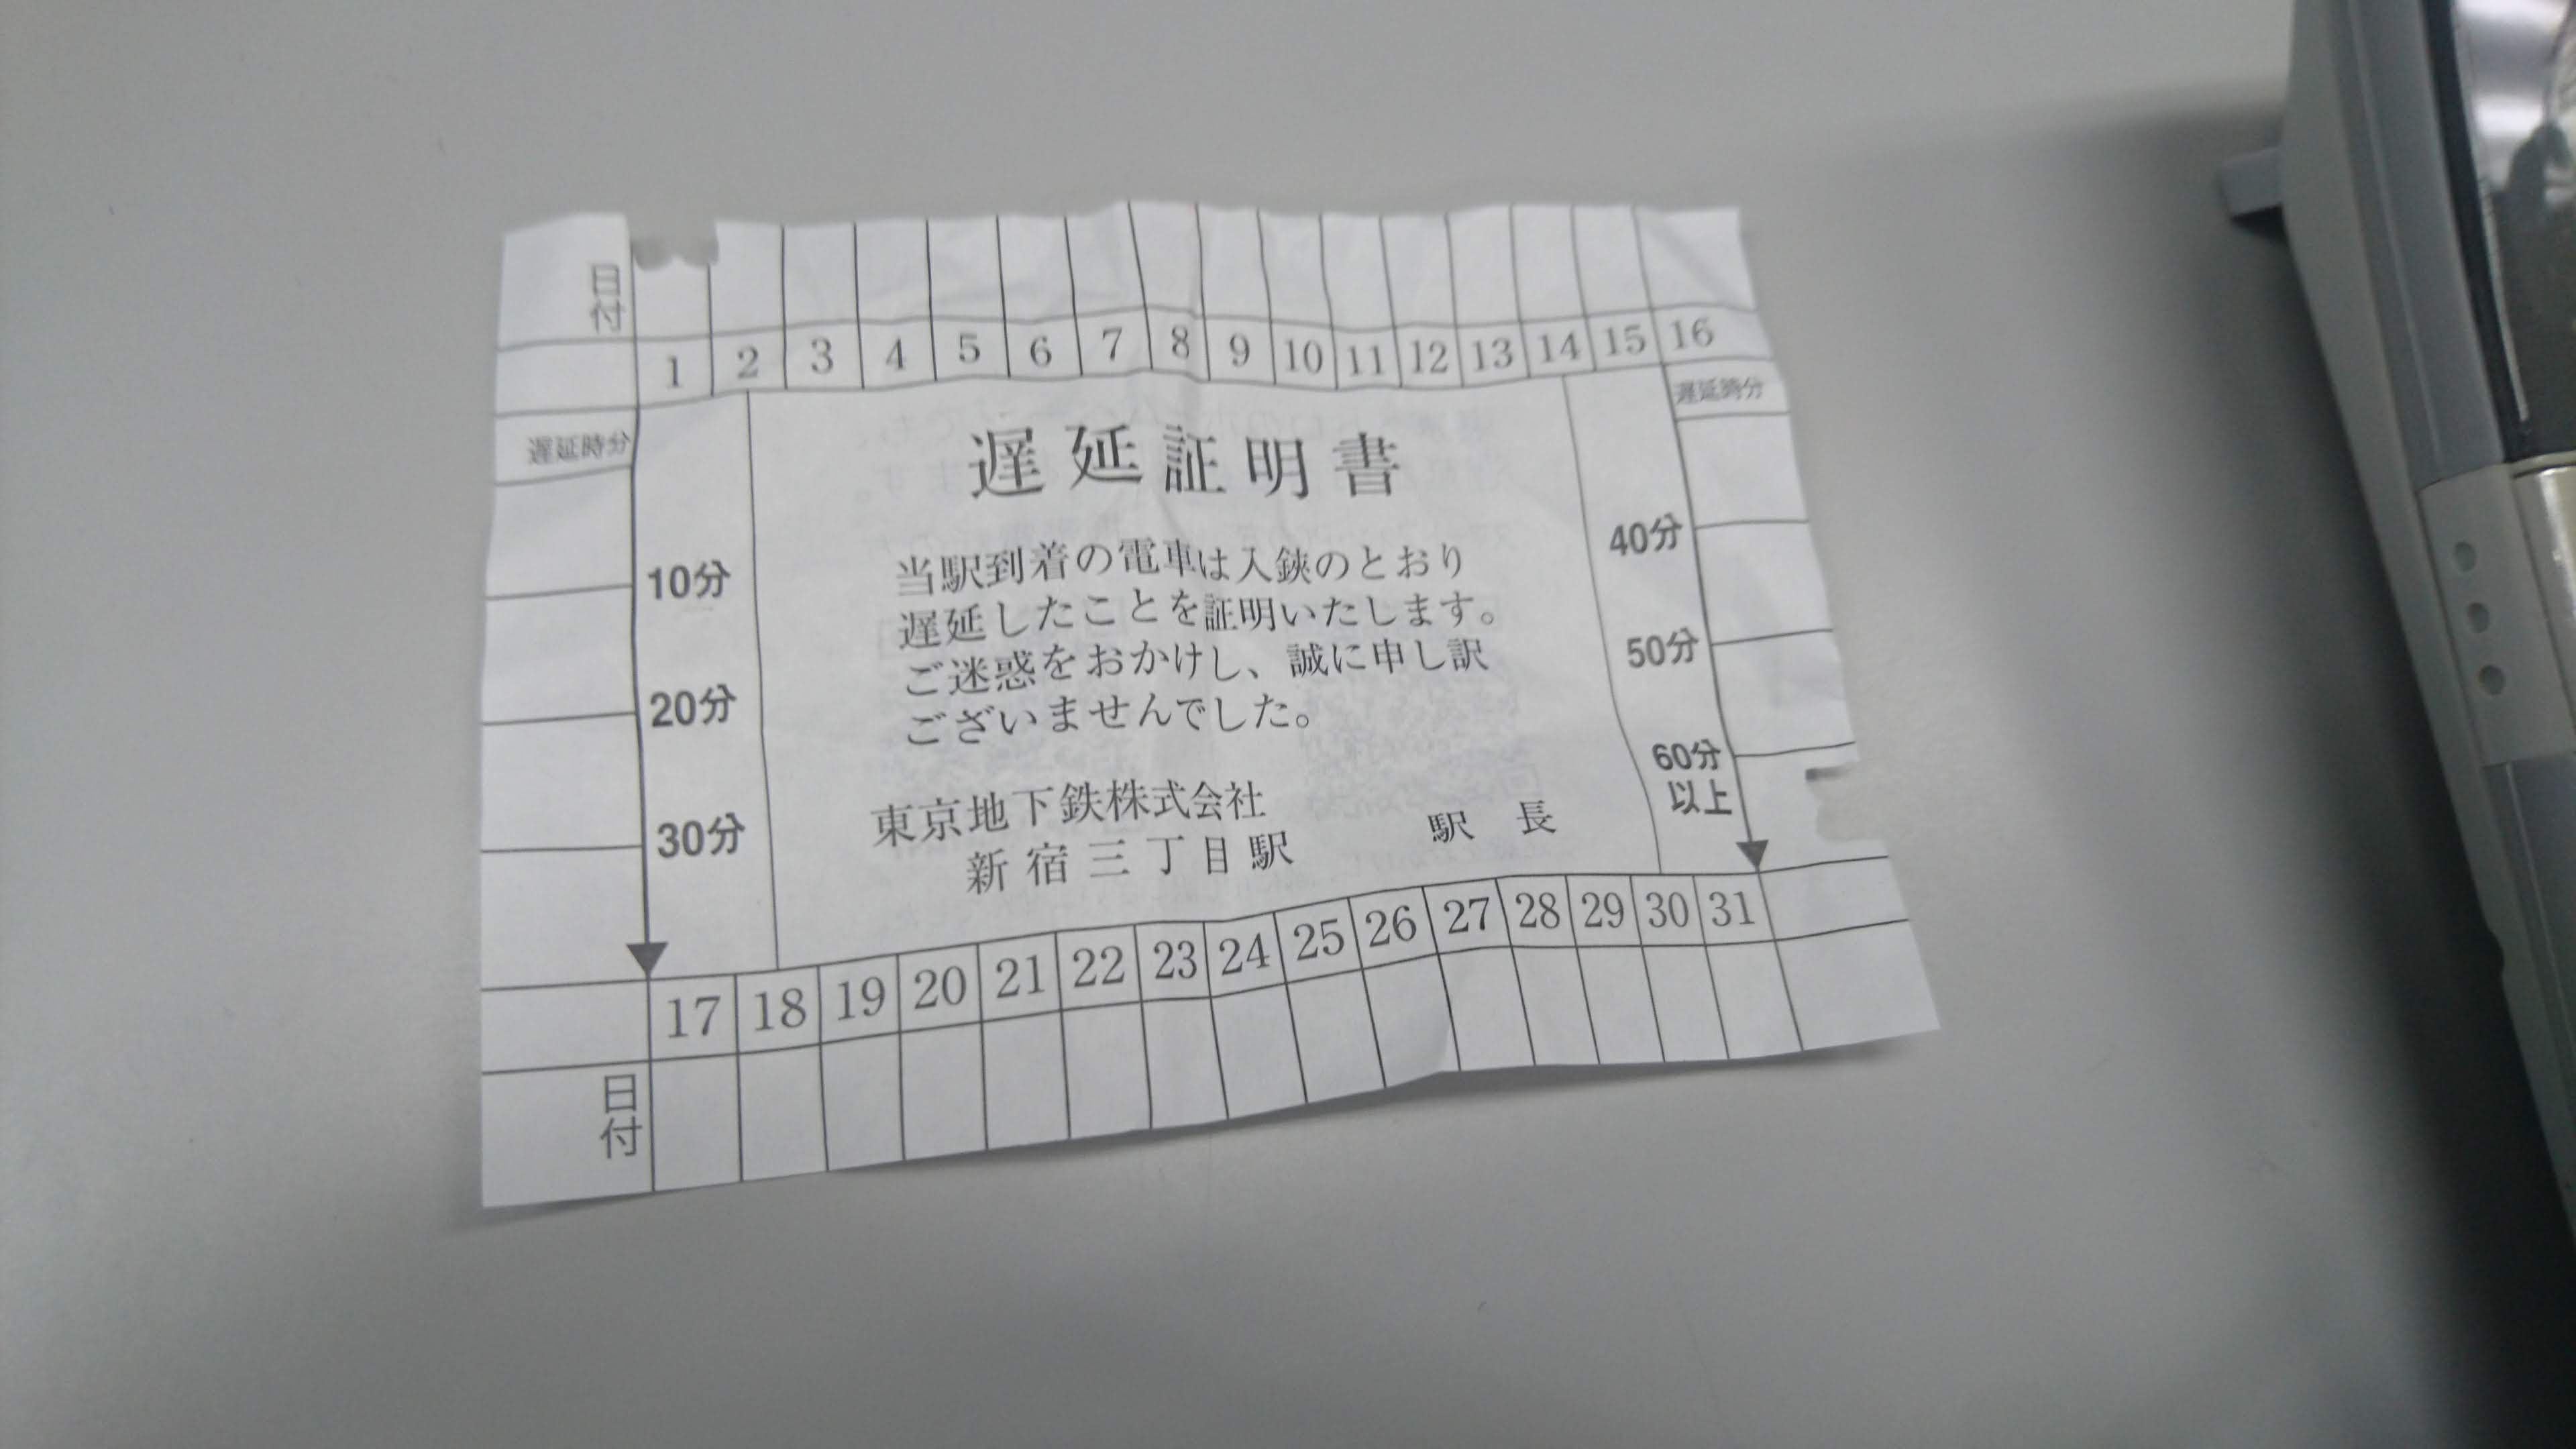 日付
1 2 3 4 5 6 7 8 9 10 11 12 13 14 15 16
遅延時分
遅延時分
遅延証明書
10分
20分
30分
40分
50分
60分
以上
当駅到着の電車は入鋏のとおり
遅延したことを証明いたします。
ご迷惑をおかけし、誠に申し訳
ございませんでした。
東京地下鉄株式会社
新宿三丁目駅 駅長
17 18 19 20 21 22 23 24 25 26 27 28 29 30 31
日付